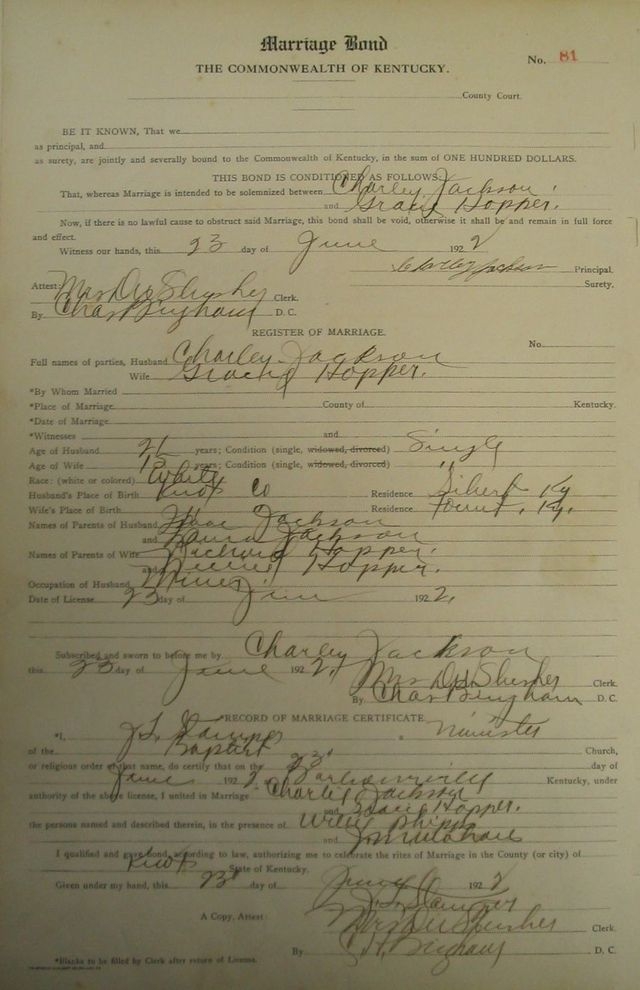 Marriage Bond
No. 81
THE COMMONWEALTH OF KENTUCKY.
County Court.
BE IT KNOWN, That we
as principal, and
as surety, are jointly and severally bound to the Commonwealth of Kentucky, in the sum of ONE HUNDRED DOLLARS.
THIS BOND IS CONDITIONED AS FOLLOWS:
That, whereas Marriage is intended to be solemnized between Charley Jackson
and Hopper.
Now, if there is no lawful cause to obstruct said Marriage, this bond shall be void, otherwise it shall be and remain in full force
and effect.
Witness our hands, this 23 day of June 1922
Charley Jackson Principal.
Surety,
Attest: Mrs Slusher Clerk.
By Chas Bingham D. C.
REGISTER OF MARRIAGE.
No.
Full names of parties, Husband Charley Jackson
Wife Hopper.
*By Whom Married
*Place of Marriage County of Kentucky.
*Date of Marriage
*Witnesses and
Age of Husband 21 years; Condition (single, widowed, divorced) Single
Age of Wife 15 years; Condition (single, widowed, divorced) "
Race: (white or colored) White
Husband's Place of Birth Knox Co Residence Sibert Ky
Wife's Place of Birth Residence Ky.
Names of Parents of Husband Jackson
and Laura Jackson
Names of Parents of Wife Hopper.
and Hopper.
Occupation of Husband Miner
Date of License 23 day of June 1922.
Subscribed and sworn to before me by Charley Jackson
this 23 day of June 1922. Mrs Slusher Clerk.
By Chas Bingham D. C.
RECORD OF MARRIAGE CERTIFICATE.
*I, J. L. a Minister
of the Baptist Church,
or religious order of that name, do certify that on the 23 day of
June 1922 Barbourville Kentucky, under
authority of the above license, I united in Marriage Charley Jackson
and Hopper.
the persons named and described therein, in the presence of Willie
and
I qualified and gave bond, according to law, authorizing me to celebrate the rites of Marriage in the County (or city) of
Knox State of Kentucky.
Given under my hand, this 23 day of June 1922
J. L.
A Copy, Attest: Mrs Slusher Clerk.
By Bingham D. C.
*Blanks to be filled by Clerk after return of License.